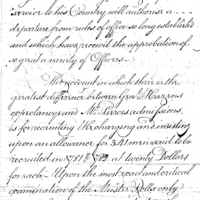 service to his Country will authorise a
departure from rules of office so long established
and which have receivd the approbation of
so great a variety of Officers.
The account in which there is the
greatest difference between Genl Hazens
expectancy and Mr Pierces admissions,
is for recruiting & recharging and insisting
upon an allowance for 341 men said to be
recruited in 1781 & 1782 at twenty Dollars
for each. Upon the most exact and critical
examination of the Muster Rolls only